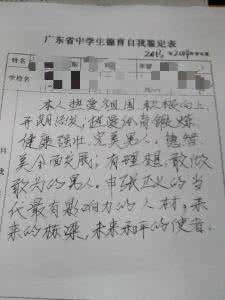 广东省中学生德育自我鉴定表
姓名
学校名
本人热爱祖国积极向上,
开朗活泼,热爱体育锻炼
健康强壮,完美男人。德智
美全面发展,有理想敢做
敢为的男人。申张正义的当
代最有影响力的人材,未
来的栋梁,未来和平的使者。
自
我